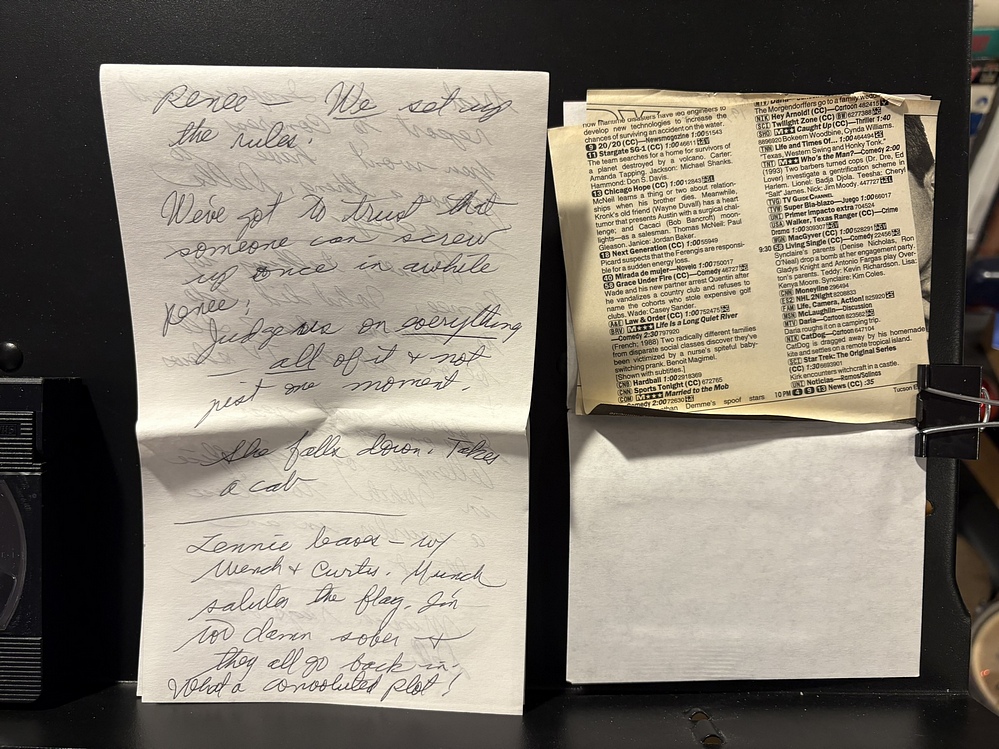 Renee — We set up
the rules!
We've got to trust that
someone can screw
up once in awhile
Renee!
Judge us on everything
all of it & not
just one moment.
She falls down. Takes
a cab
Lennie leaves — w/
Munch & Curtis. Munch
salutes the flag. I'm
too damn sober &
they all go back in.
What a convoluted plot!
develop new technologies to increase the
chances of surviving an accident on the water.
9 20/20 (CC)—Newsmagazine 1:00 51543
11 Stargate SG-1 (CC) 1:00 46611
The team searches for a home for survivors of
a planet destroyed by a volcano. Carter:
Amanda Tapping. Jackson: Michael Shanks.
Hammond: Don S. Davis.
13 Chicago Hope (CC) 1:00 12843
McNeil learns a thing or two about relation-
ships when his brother dies. Meanwhile,
Kronk's old friend (Wayne Duvall) has a heart
tumor that presents Austin with a surgical chal-
lenge; and Cacaci (Bob Bancroft) moon-
lights—as a salesman. Thomas McNeil: Paul
Gleason. Janice: Jordan Baker.
18 Next Generation (CC) 1:00 55949
Picard suspects that the Ferengis are responsi-
ble for a sudden energy loss.
40 Mirada de mujer—Novelo 1:00 750017
58 Grace Under Fire (CC)—Comedy 46727
Wade and his new partner arrest Quentin after
he vandalizes a country club and refuses to
name the cohorts who stole expensive golf
clubs. Wade: Casey Sander.
A&E Law & Order (CC) 1:00 752475
BRV M★★★ Life Is a Long Quiet River
—Comedy 2:30 797920
(French; 1988) Two radically different families
from disparate social classes discover they've
been victimized by a nurse's spiteful baby-
switching prank. Benoit Magimel.
[Shown with subtitles.]
CNB Hardball 1:00 2918369
CNN Sports Tonight (CC) 672765
COM M★★★ Married to the Mob
—Comedy 2:00 72630
Demme's spoof stars
The Morgendorffers go to a family wedding.
NIK Hey Arnold! (CC)—Cartoon 482415
SCI Twilight Zone (CC) BW 6277388
SHO M★★ Caught Up (CC)—Thriller 1:40
8896920 Bokeem Woodbine, Cynda Williams.
TNN Life and Times Of... 1:00 464494
"Texas, Western Swing and Honky Tonk."
TNT M★★ Who's the Man?—Comedy 2:00
(1993) Two barbers turned cops (Dr. Dre, Ed
Lover) investigate a gentrification scheme in
Harlem. Lionel: Badja Djola. Teesha: Cheryl
"Salt" James. Nick: Jim Moody. 447727
TVG TV GUIDE CHANNEL
TVW Super Bla-blazo—Juego 1:00 66017
UNI Primer impacto extra 704524
USA Walker, Texas Ranger (CC)—Crime
Drama 1:00 309307
WGN MacGyver (CC) 1:00 528291
9:30 58 Living Single (CC)—Comedy 22456
Synclaire's parents (Denise Nicholas, Ron
O'Neal) drop a bomb at her engagement party.
Gladys Knight and Antonio Fargas play Over-
ton's parents. Teddy: Kevin Richardson. Lisa:
Kenya Moore. Synclaire: Kim Coles.
CNN Moneyline 296494
ES2 NHL 2Night 8208833
FAM Life, Camera, Action! 825920
MSN McLaughlin—Discussion
MTV Daria—Cartoon 823562
Daria roughs it on a camping trip.
NIK CatDog—Cartoon 647104
CatDog is dragged away by his homemade
kite and settles on a remote tropical island.
SCI Star Trek: The Original Series
(CC) 1:30 6693901
Kirk encounters witchcraft in a castle.
UNI Noticias—Ramos/Salinas
10 PM 4 9 13 News (CC) :35
Tucson E